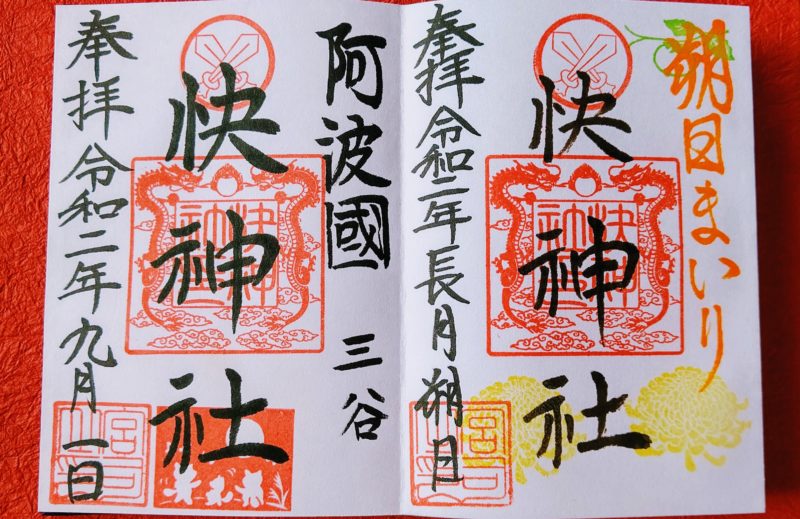 朔日まいり
快神社
奉拝 令和二年長月朔日
阿波國 三谷
快神社
奉拝 令和二年九月一日